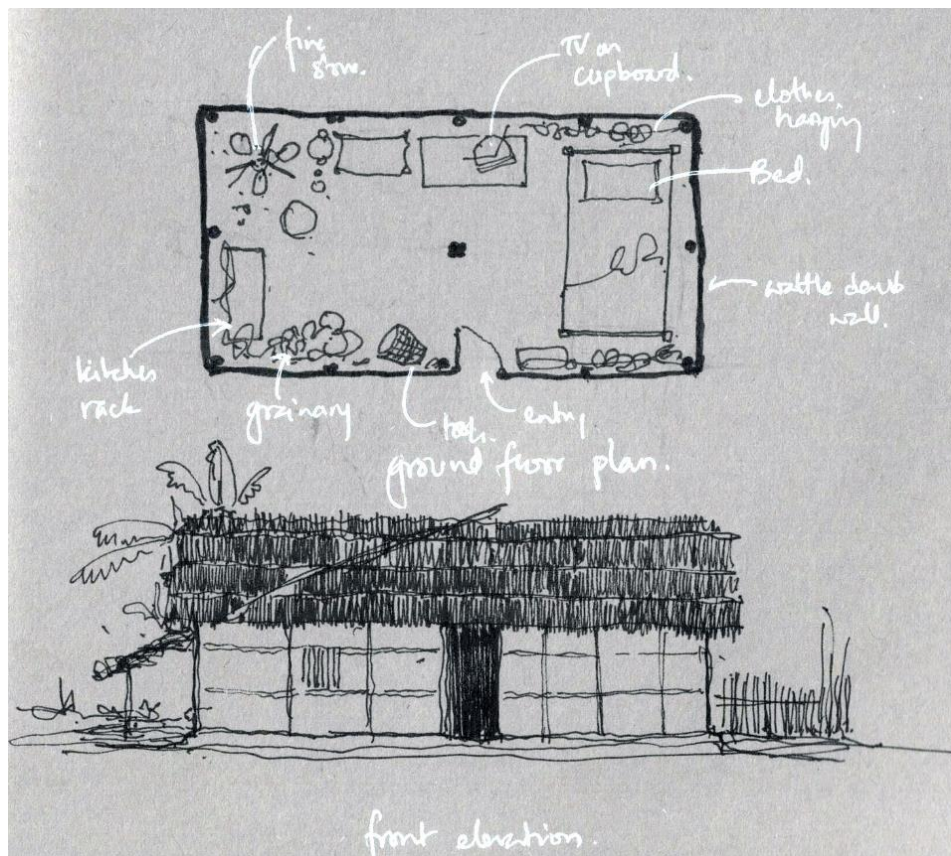 fire
stove.
TV on
cupboard.
clothes
hanging
Bed.
wattle daub
wall.
kitchen
rack
grainary
tools.
entry
ground floor plan.
front elevation.